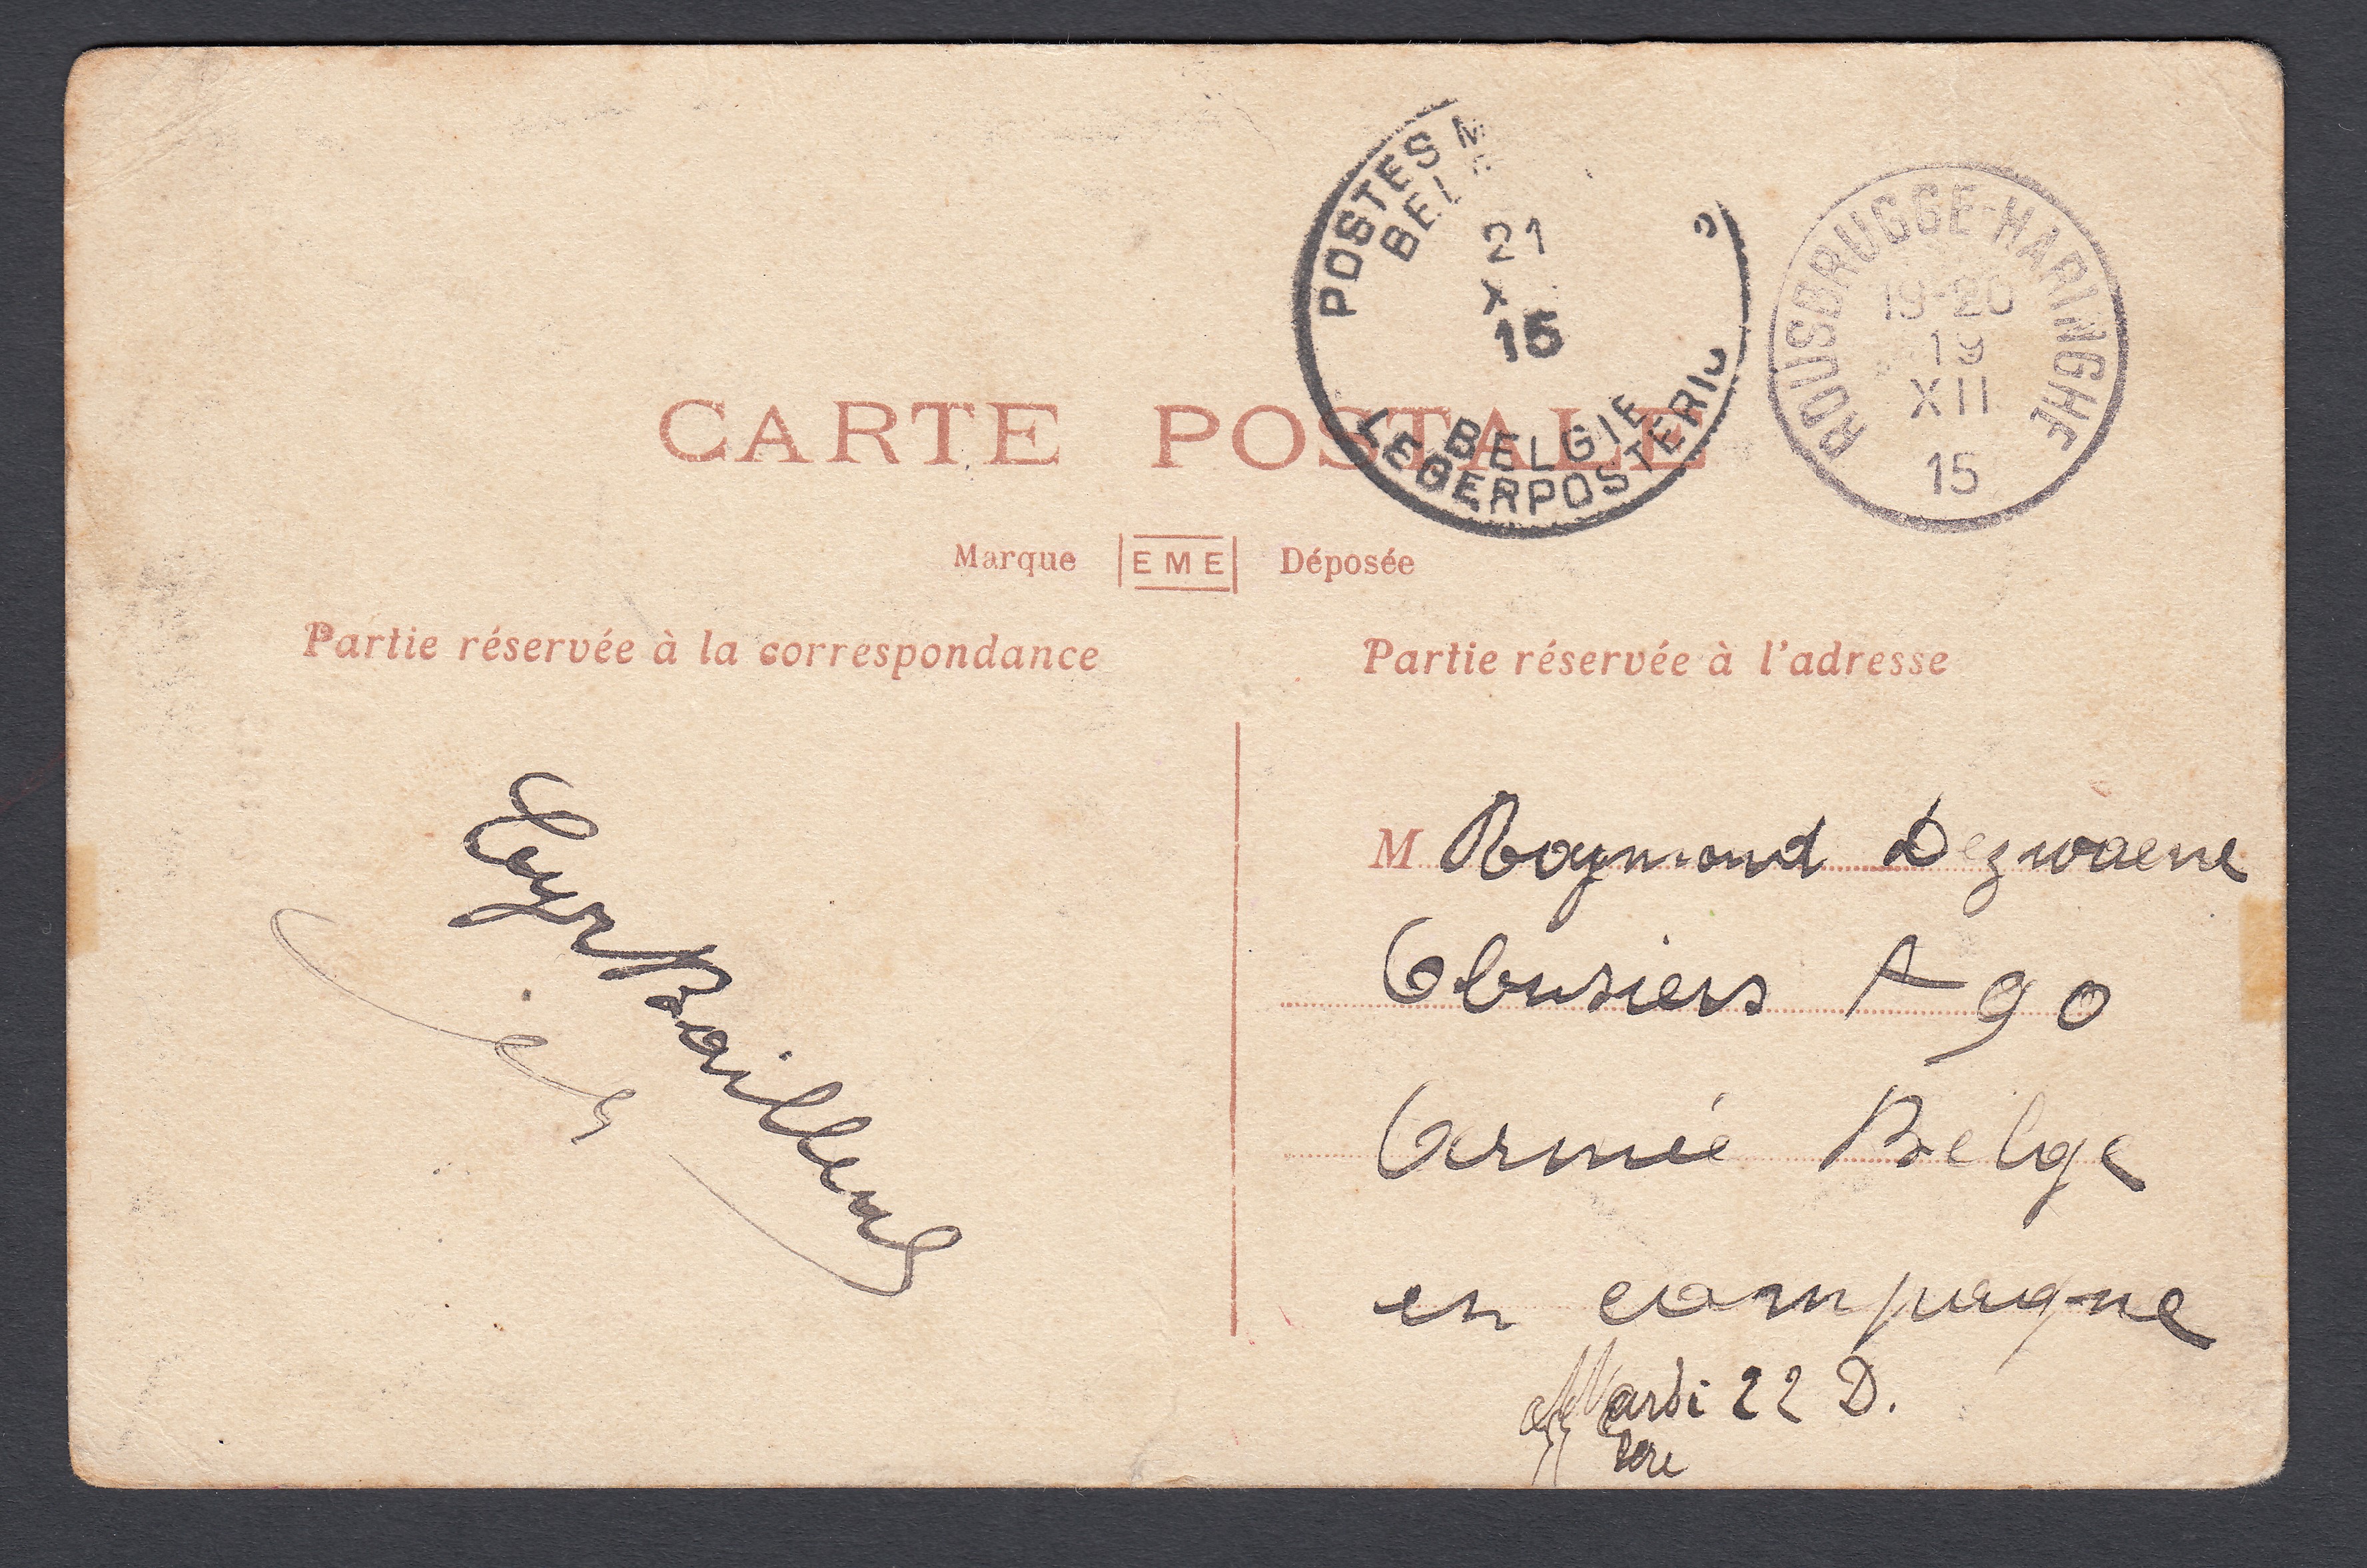 POSTES M
BEL
21
X
15
BELGIE
LEGERPOSTERIJ
ROUSBRUGGE-HARINGHE
19-20
19
XII
15
CARTE POSTALE
Marque EME Déposée
Partie réservée à la correspondance
Partie réservée à l'adresse
M Raymond Dezwaene
Obusiers A 90
Armée Belge
en campagne
Mardi 22 D.